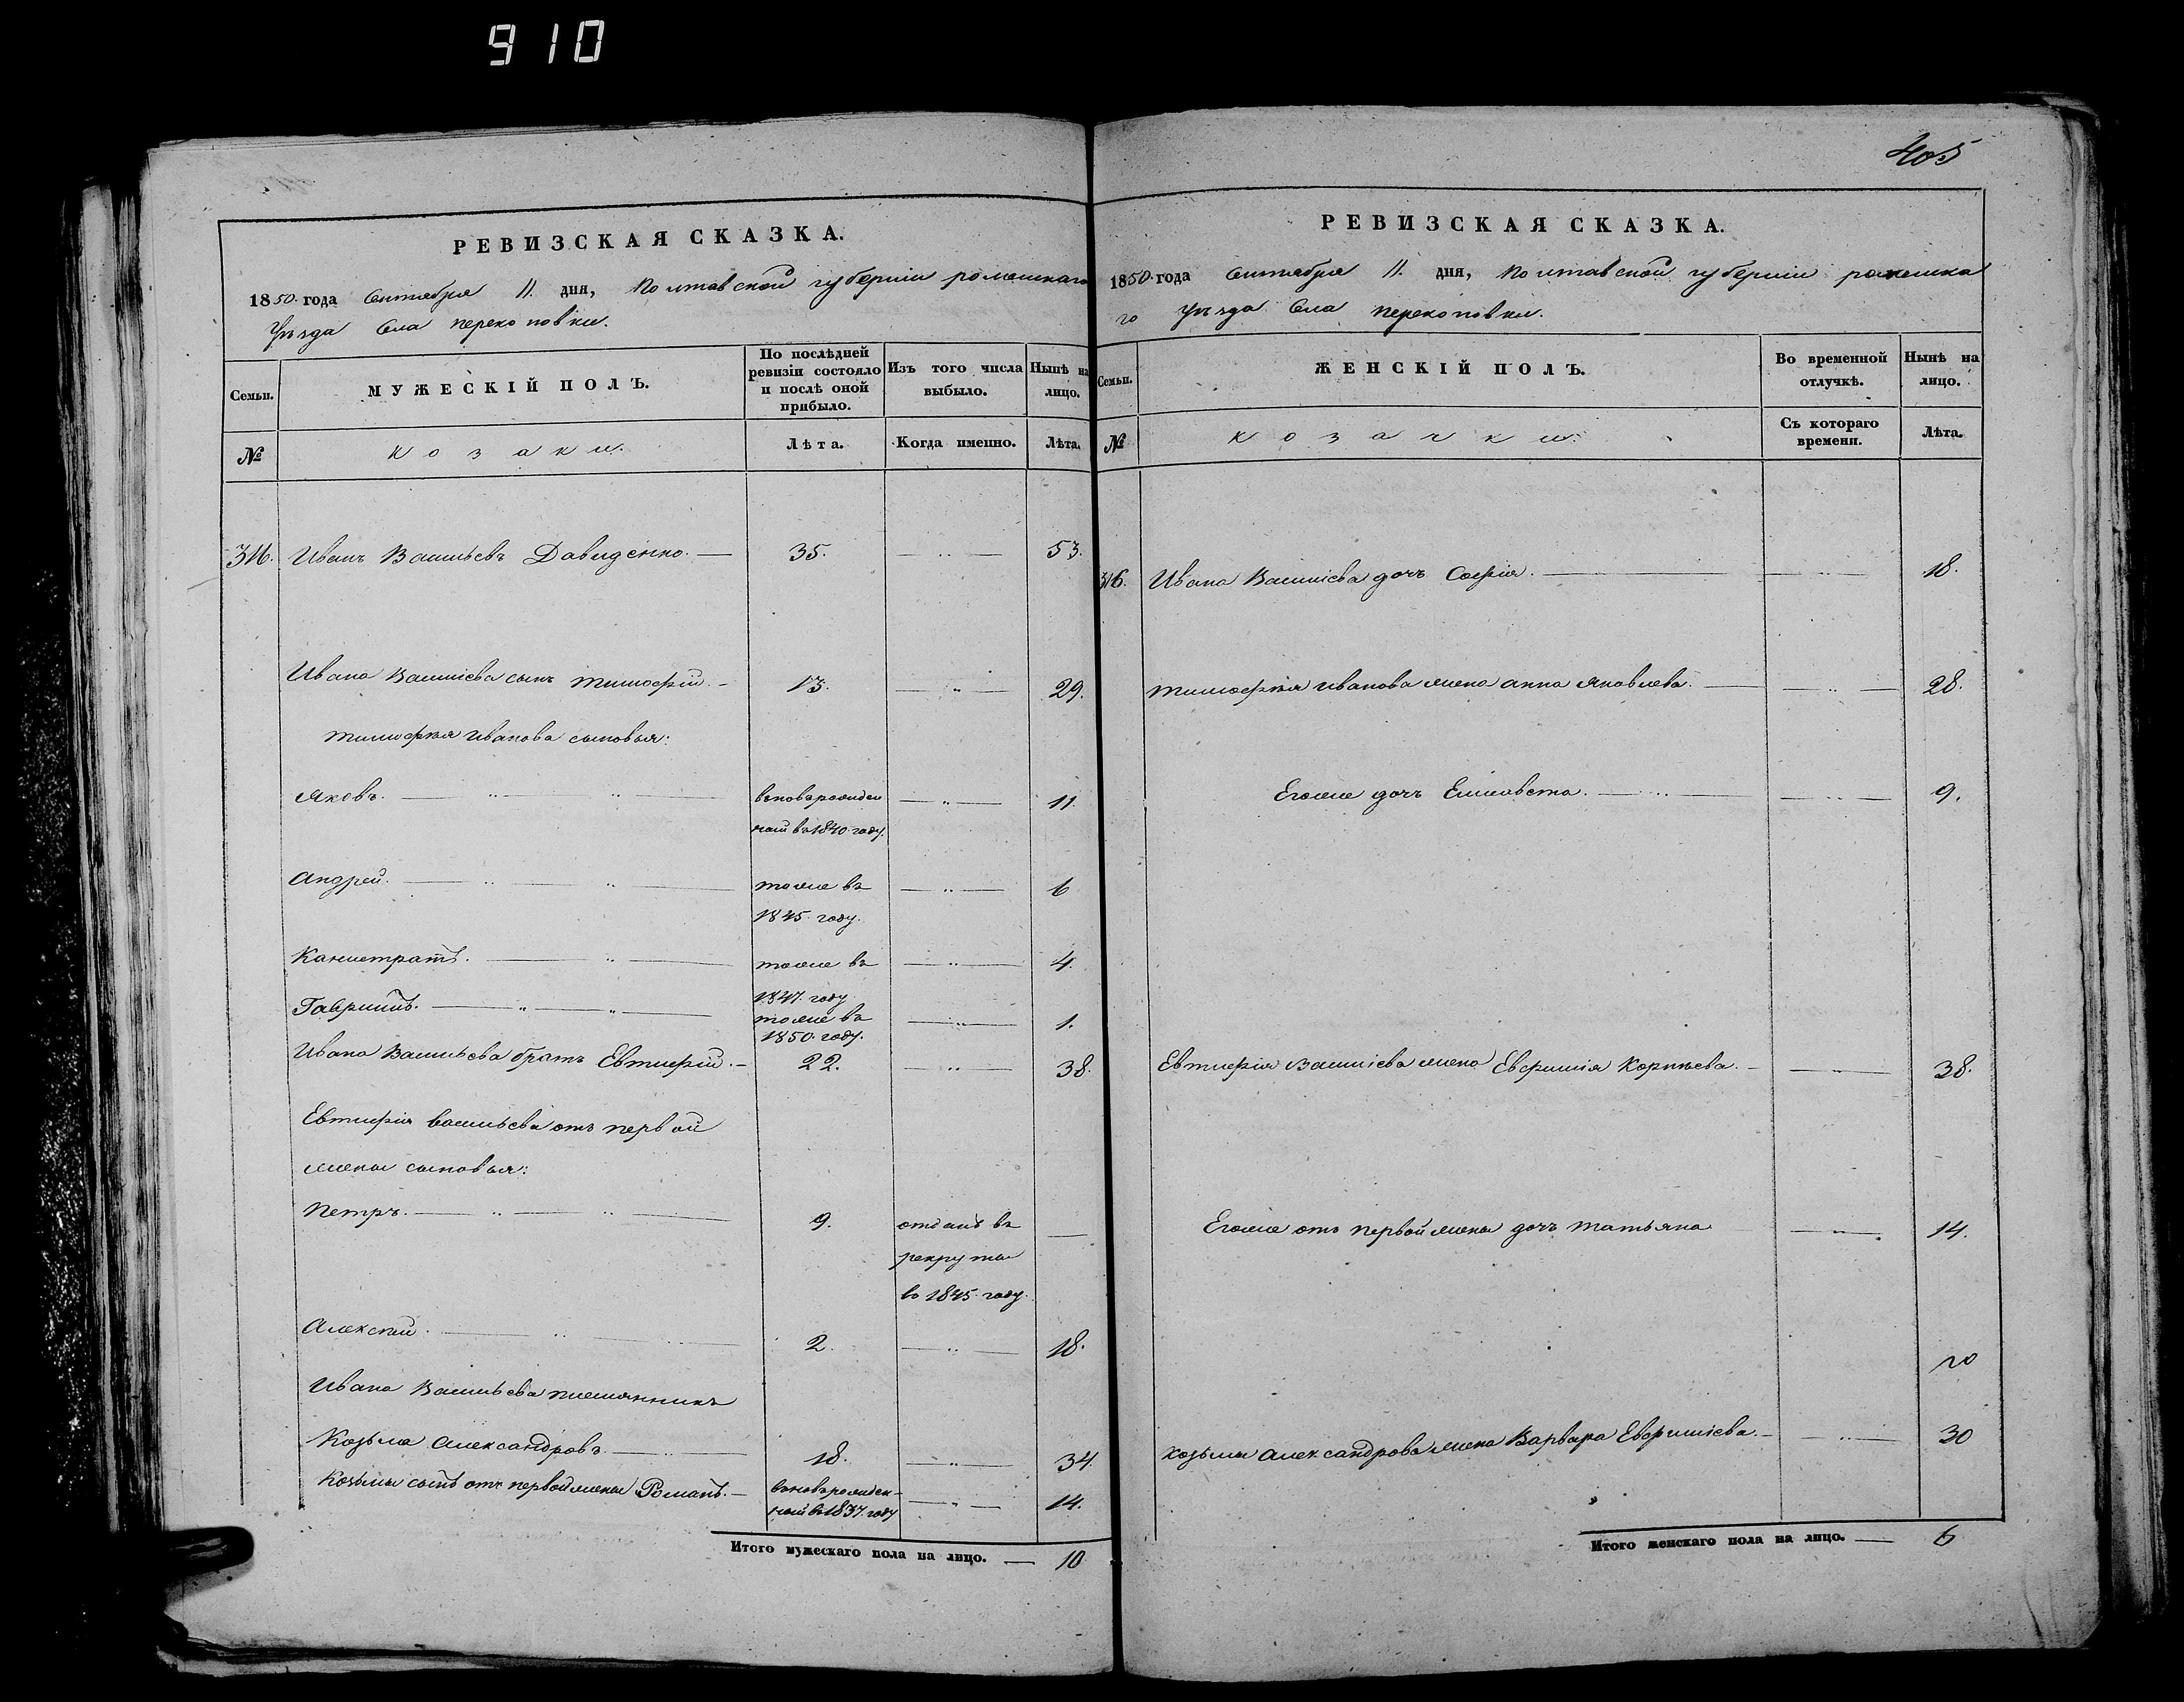 910
405
РЕВИЗСКАЯ СКАЗКА.
1850 года Сентября 11. дня, Полтавской губернии роменскаго
Уѣзда Села перекоповки.
Семьи.
МУЖЕСКІЙ ПОЛЪ.
По послѣдней
ревизіи состояло
и послѣ оной
прибыло.
Изъ того числа
выбыло.
Нынѣ на
лицо.
№
козаки.
Лѣта.
Когда именно.
Лѣта.
316. Иванъ Васильевъ Давиденко. — 35. — „ — 53.
Ивана Василіева сынъ тимофей — 13. — „ — 29.
тимофея иванова сыновья:
Яковъ. — „ — „ — вновьрожден — „ — 11.
ной въ 1840. году.
Андрей. — „ — „ — тоже въ — „ — 6
1845. году.
Калистратъ. — „ — тоже въ — „ — 4.
1847. году
Гавріилъ. — „ — „ — тоже въ — „ — 1.
1850. году.
Ивана Васильева братъ Евтифій. — 22. — „ — 38.
Евтифія васильева отъ первой
жены сыновья:
Петръ. — „ — „ — 9. отданъ въ —
рекруты
въ 1845. году.
Алексей. — „ — 2. — „ — 18.
Ивана Васильева племянникъ
Козьма Александровъ. — „ — 18. — „ — 34.
Козьмы сынъ отъ первой жены Романъ. — вновьрожден- — „ — 14.
ной въ 1837. году
Итого мужескаго пола на лицо. — 10
РЕВИЗСКАЯ СКАЗКА.
1850 года Сентября 11. дня, Полтавской губерніи роменска
го Уѣзда Села перекоповки.
Семьи.
ЖЕНСКІЙ ПОЛЪ.
Во временной
отлучкѣ.
Нынѣ на
лицо.
№
козачки.
Съ котораго
времени.
Лѣта.
316. Ивана Василіева дочь Софія. — „ — 18.
тимофея иванова жена анна яковлева. — „ — 28.
Егоже дочь Елисавета. — „ — 9.
Евтифія Василіева жена Евфимія Корнѣева. — „ — 38.
Егоже отъ первой жены дочь татьяна — „ — 14.
козьмы александрова жена Варвара Евфиміева. — „ — 30
Итого женскаго пола на лицо. — 6